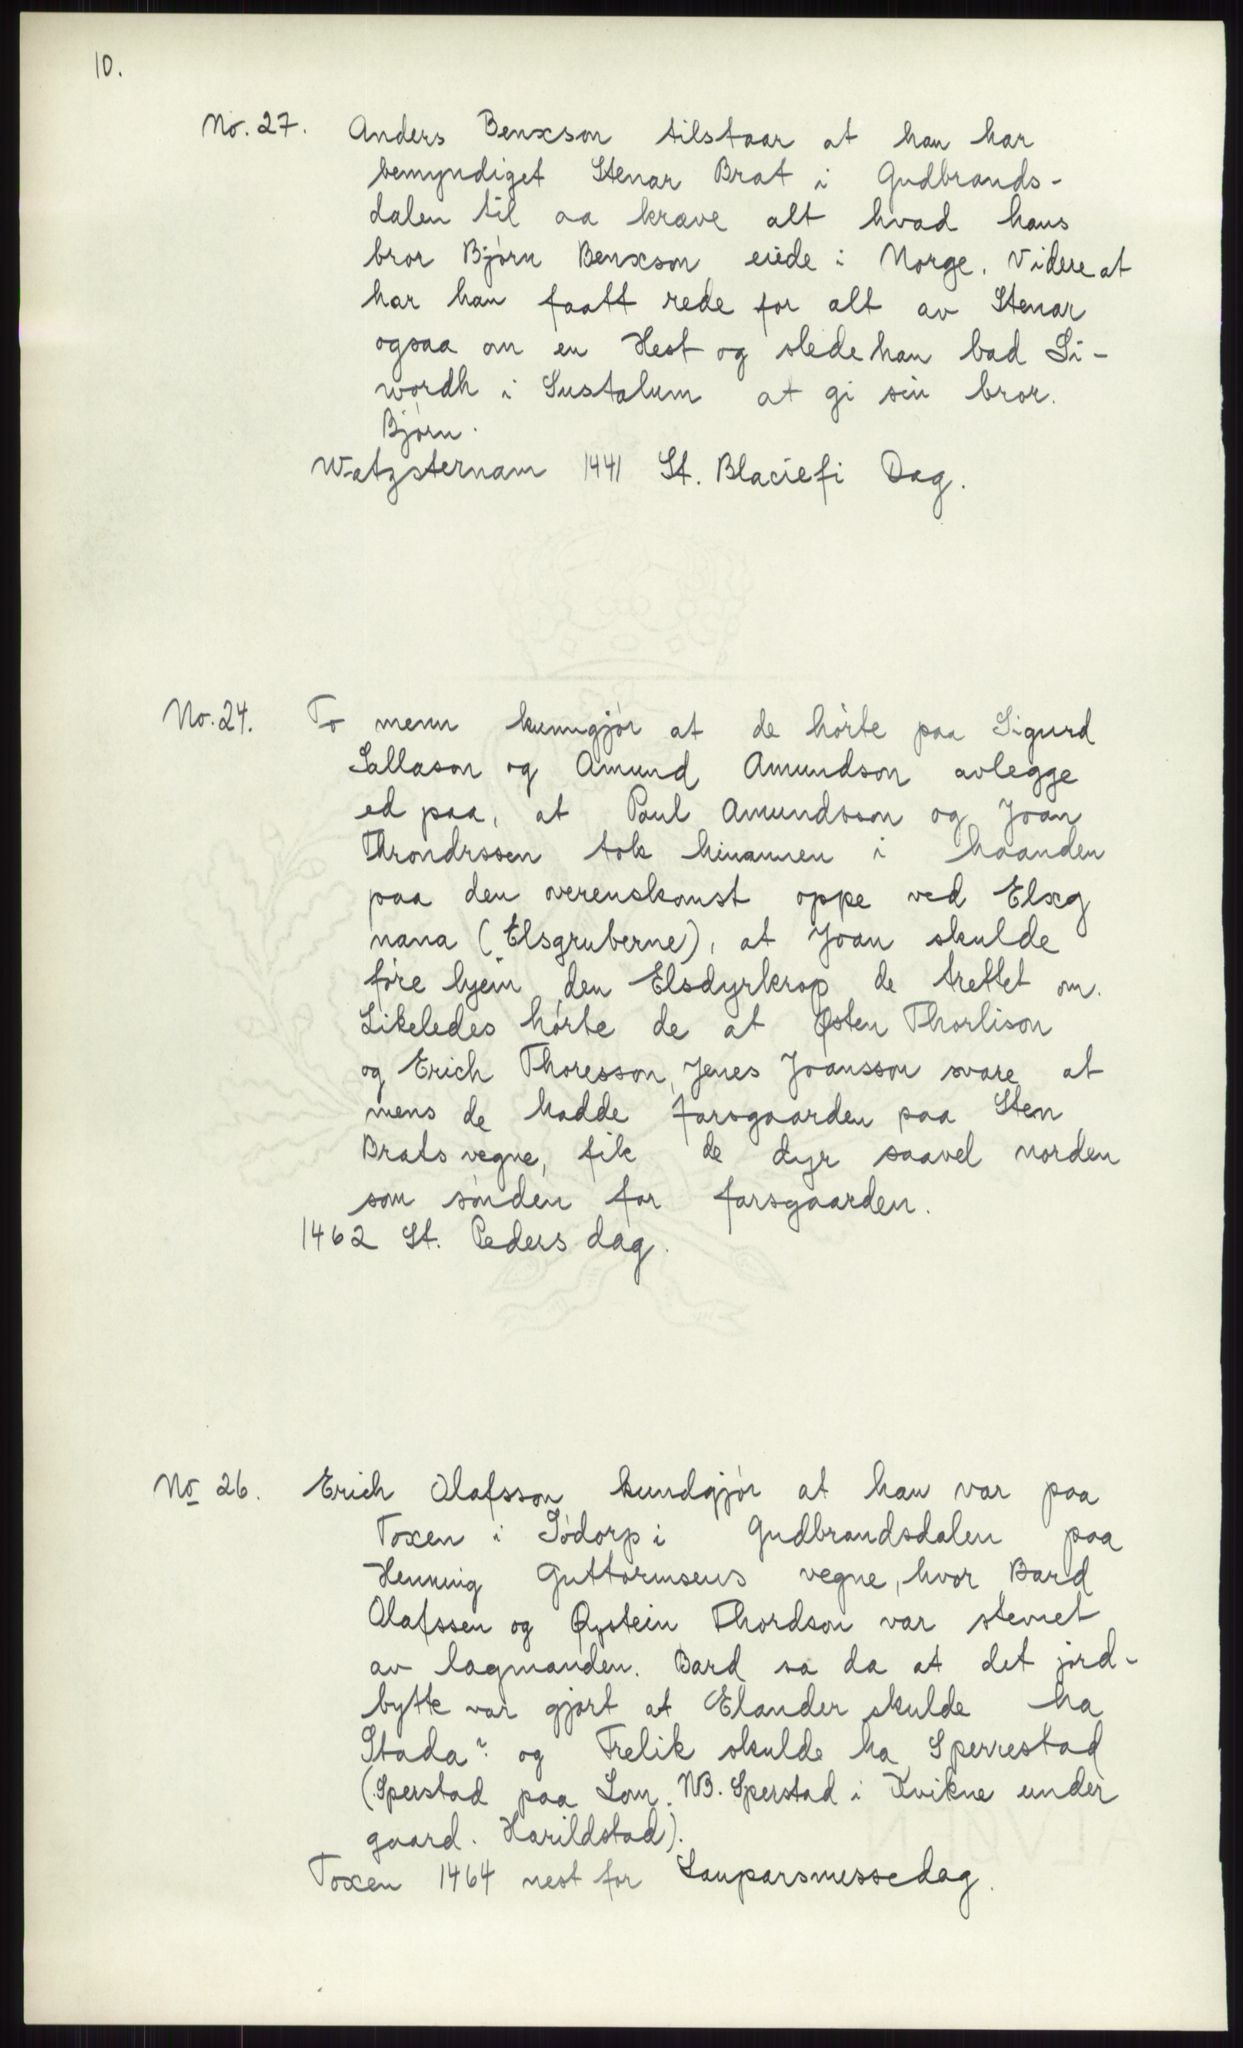 10.
No. 27. Anders Benxson tilstaar at han har
bemyndiget Stenar Brat i Gudbrands-
dalen til aa kræve alt hvad hans
bror Bjørn Benxson eiede i Norge. Videre at
har han faatt rede for alt av Stenar
ogsaa om en Hest og slede han bad Si-
wordh i Sustalum at gi sin bror.
Bjørn.
Watzsternam 1441 St. Blaciefi Dag.
No. 24. To menn kunngjør at de hørte paa Sigurd
Sallason og Amund Amundson avlegge
ed paa, at Paul Amundsson og Joan
Throndrssen tok hinannen i haanden
paa den overenskomst oppe ved Elxg
nana (Elsgruberne), at Joan skulde
føre hjem den Elsdyrkrop de trettet om.
Likeledes hørte de at Østen Thorlison
og Erich Thoresson, Jenes Joansson svare at
mens de hadde farsgaarden paa Sten
Brats vegne, fik de dyr saavel norden
som sønden for farsgaarden.
1462 St. Peders dag.
No 26. Erich Olafsson kundgjør at han var paa
Toxen i Södorp i Gudbrandsdalen paa
Henning Guttormsens vegne, hvor Bard
Olafssen og Øystein Thordson var stevnet
av lagmanden. Bard sa da at det jord-
bytte var gjort at Elander skulde ha
Stada? og Frelik skulde ha Sperrestad
(Sperstad paa Lom. NB. Sperstad i Kvikne under
gaard. Harildstad).
Toxen 1464 nest for Lauparsmessedag.